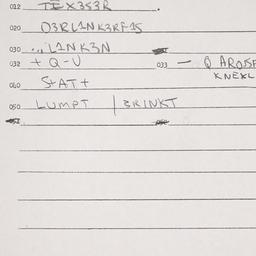 012 TEX3S3R .
020 D3RL1NK3RF15
030 ., L1NK3N
032 + Q-U 033 — Q AROSE
KNEXL
040 STATT
050 LUMPT | BRINKT